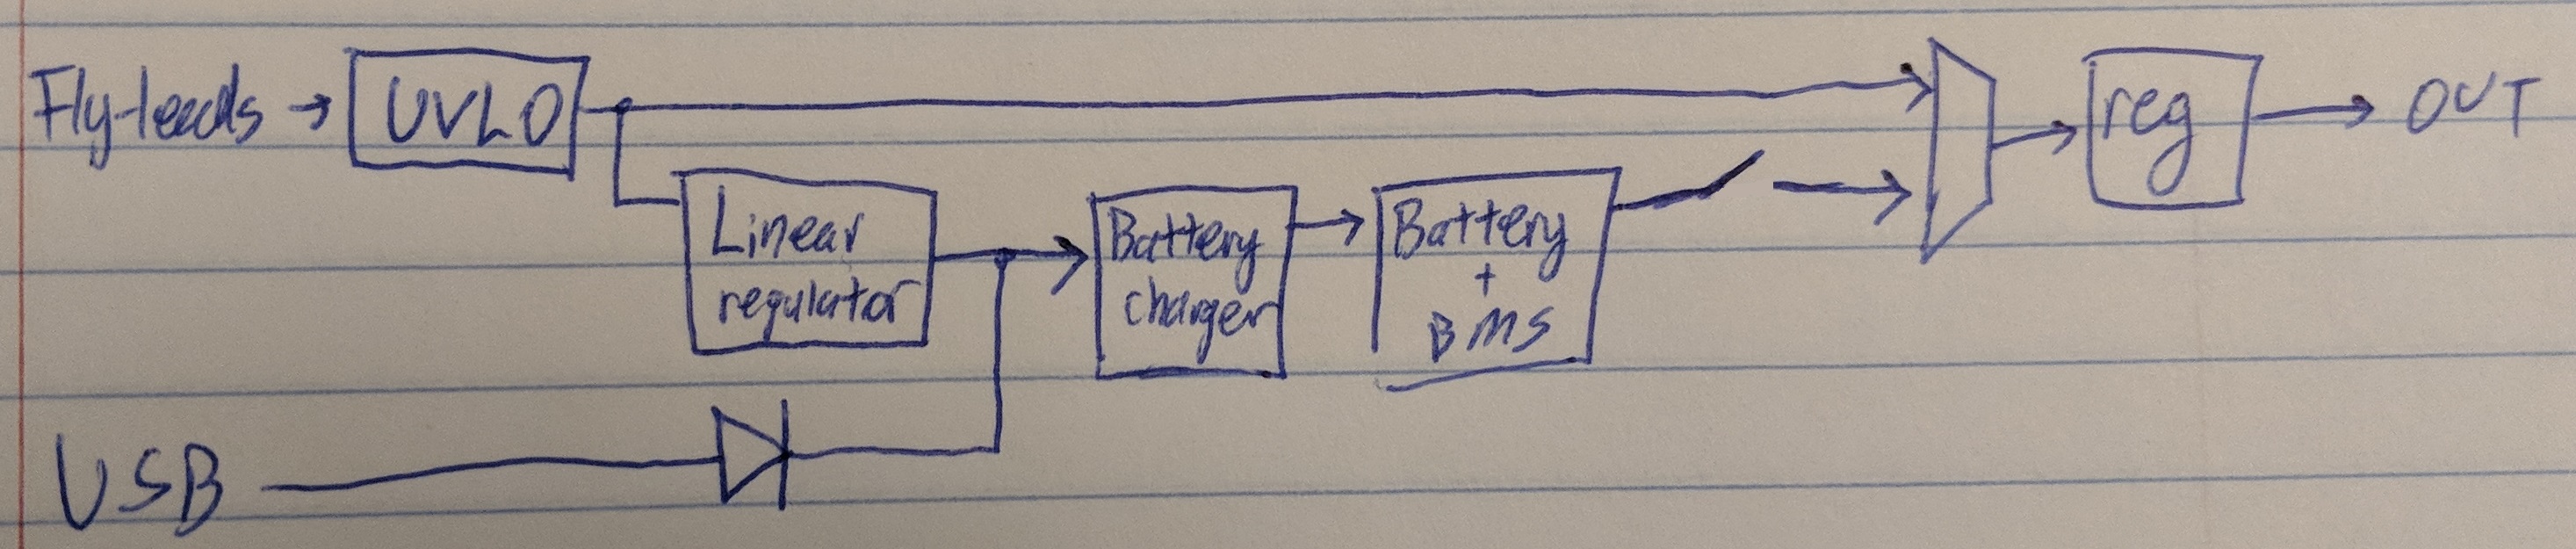 Fly-leads
UVLO
reg
OUT
Linear
regulator
Battery
charger
Battery
+
BMS
USB